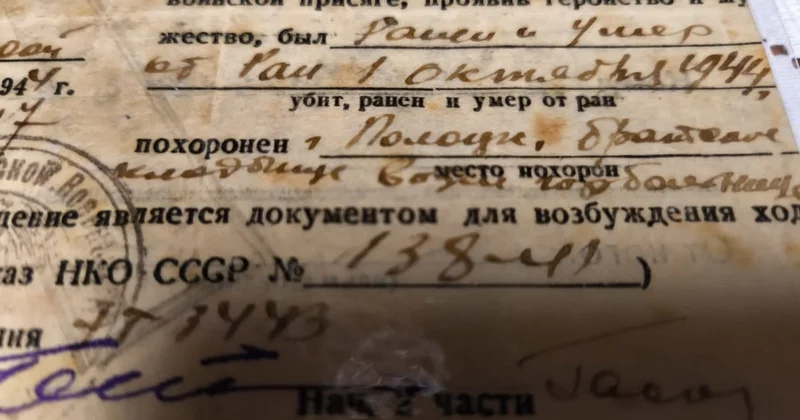 воинской присяге, проявив геройство и му
жество, был ранен и умер
от ран 1 октября 1944
944 г.
убит, ранен и умер от ран
похоронен г Полоцк, братское
место похорон
кладбище возле гор больницы
является документом для возбуждения ход
каз НКО СССР № 138-41)
ния 3443
Нач. 2 части